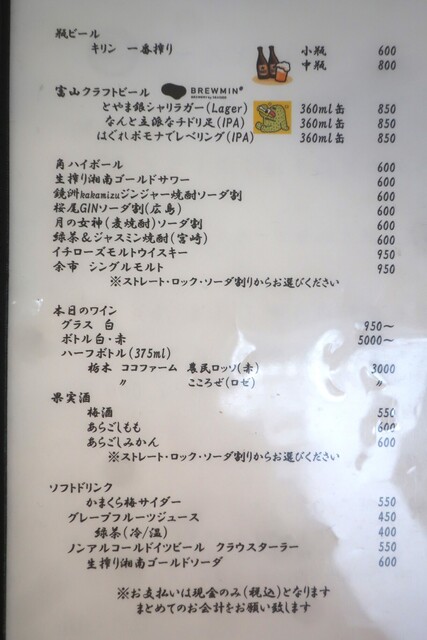 瓶ビール
キリン 一番搾り 小瓶 600
中瓶 800
富山クラフトビール BREWMIN'
とやま銀シャリラガー(Lager) 360ml缶 850
なんと立派なチドリ足(IPA) 360ml缶 850
はぐれポモナでレベリング(IPA) 360ml缶 850
角ハイボール 600
生搾り湘南ゴールドサワー 600
鏡洲kakamizuジンジャー焼酎ソーダ割 600
桜尾GINソーダ割(広島) 600
月の女神(麦焼酎)ソーダ割 600
緑茶&ジャスミン焼酎(宮崎) 600
イチローズモルトウイスキー 950
余市 シングルモルト 950
※ストレート・ロック・ソーダ割りからお選びください
本日のワイン
グラス 白 950～
ボトル白・赤 5000～
ハーフボトル(375ml)
栃木 ココファーム 農民ロッソ(赤) 3000
〃 こころぜ(ロゼ) 〃
果実酒
梅酒 550
あらごしもも 600
あらごしみかん 600
※ストレート・ロック・ソーダ割りからお選びください
ソフトドリンク
かまくら梅サイダー 550
グレープフルーツジュース 450
緑茶(冷/温) 400
ノンアルコールドイツビール クラウスターラー 550
生搾り湘南ゴールドソーダ 600
※お支払いは現金のみ(税込)となります
まとめてのお会計をお願い致します